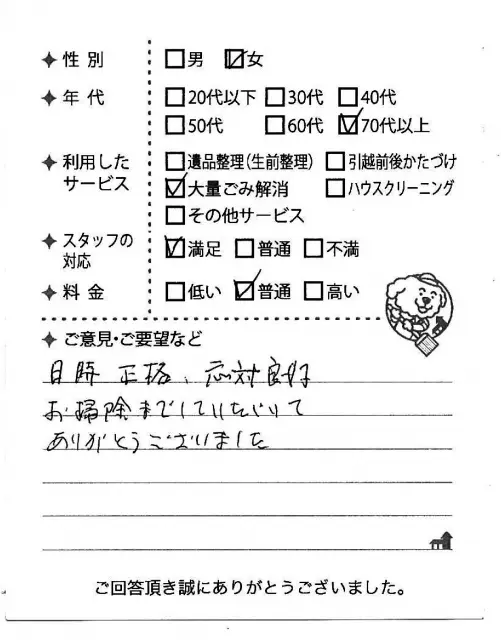 ✦ 性別 □男 ☑女
✦ 年代 □20代以下 □30代 □40代
□50代 □60代 ☑70代以上
✦ 利用した サービス □遺品整理(生前整理) □引越前後かたづけ
☑大量ごみ解消 □ハウスクリーニング
□その他サービス
✦ スタッフの 対応 ☑満足 □普通 □不満
✦ 料金 □低い ☑普通 □高い
✦ ご意見・ご要望など
日時 正格、応対良好
お掃除までしていただいて
ありがとうございました
ご回答頂き誠にありがとうございました。